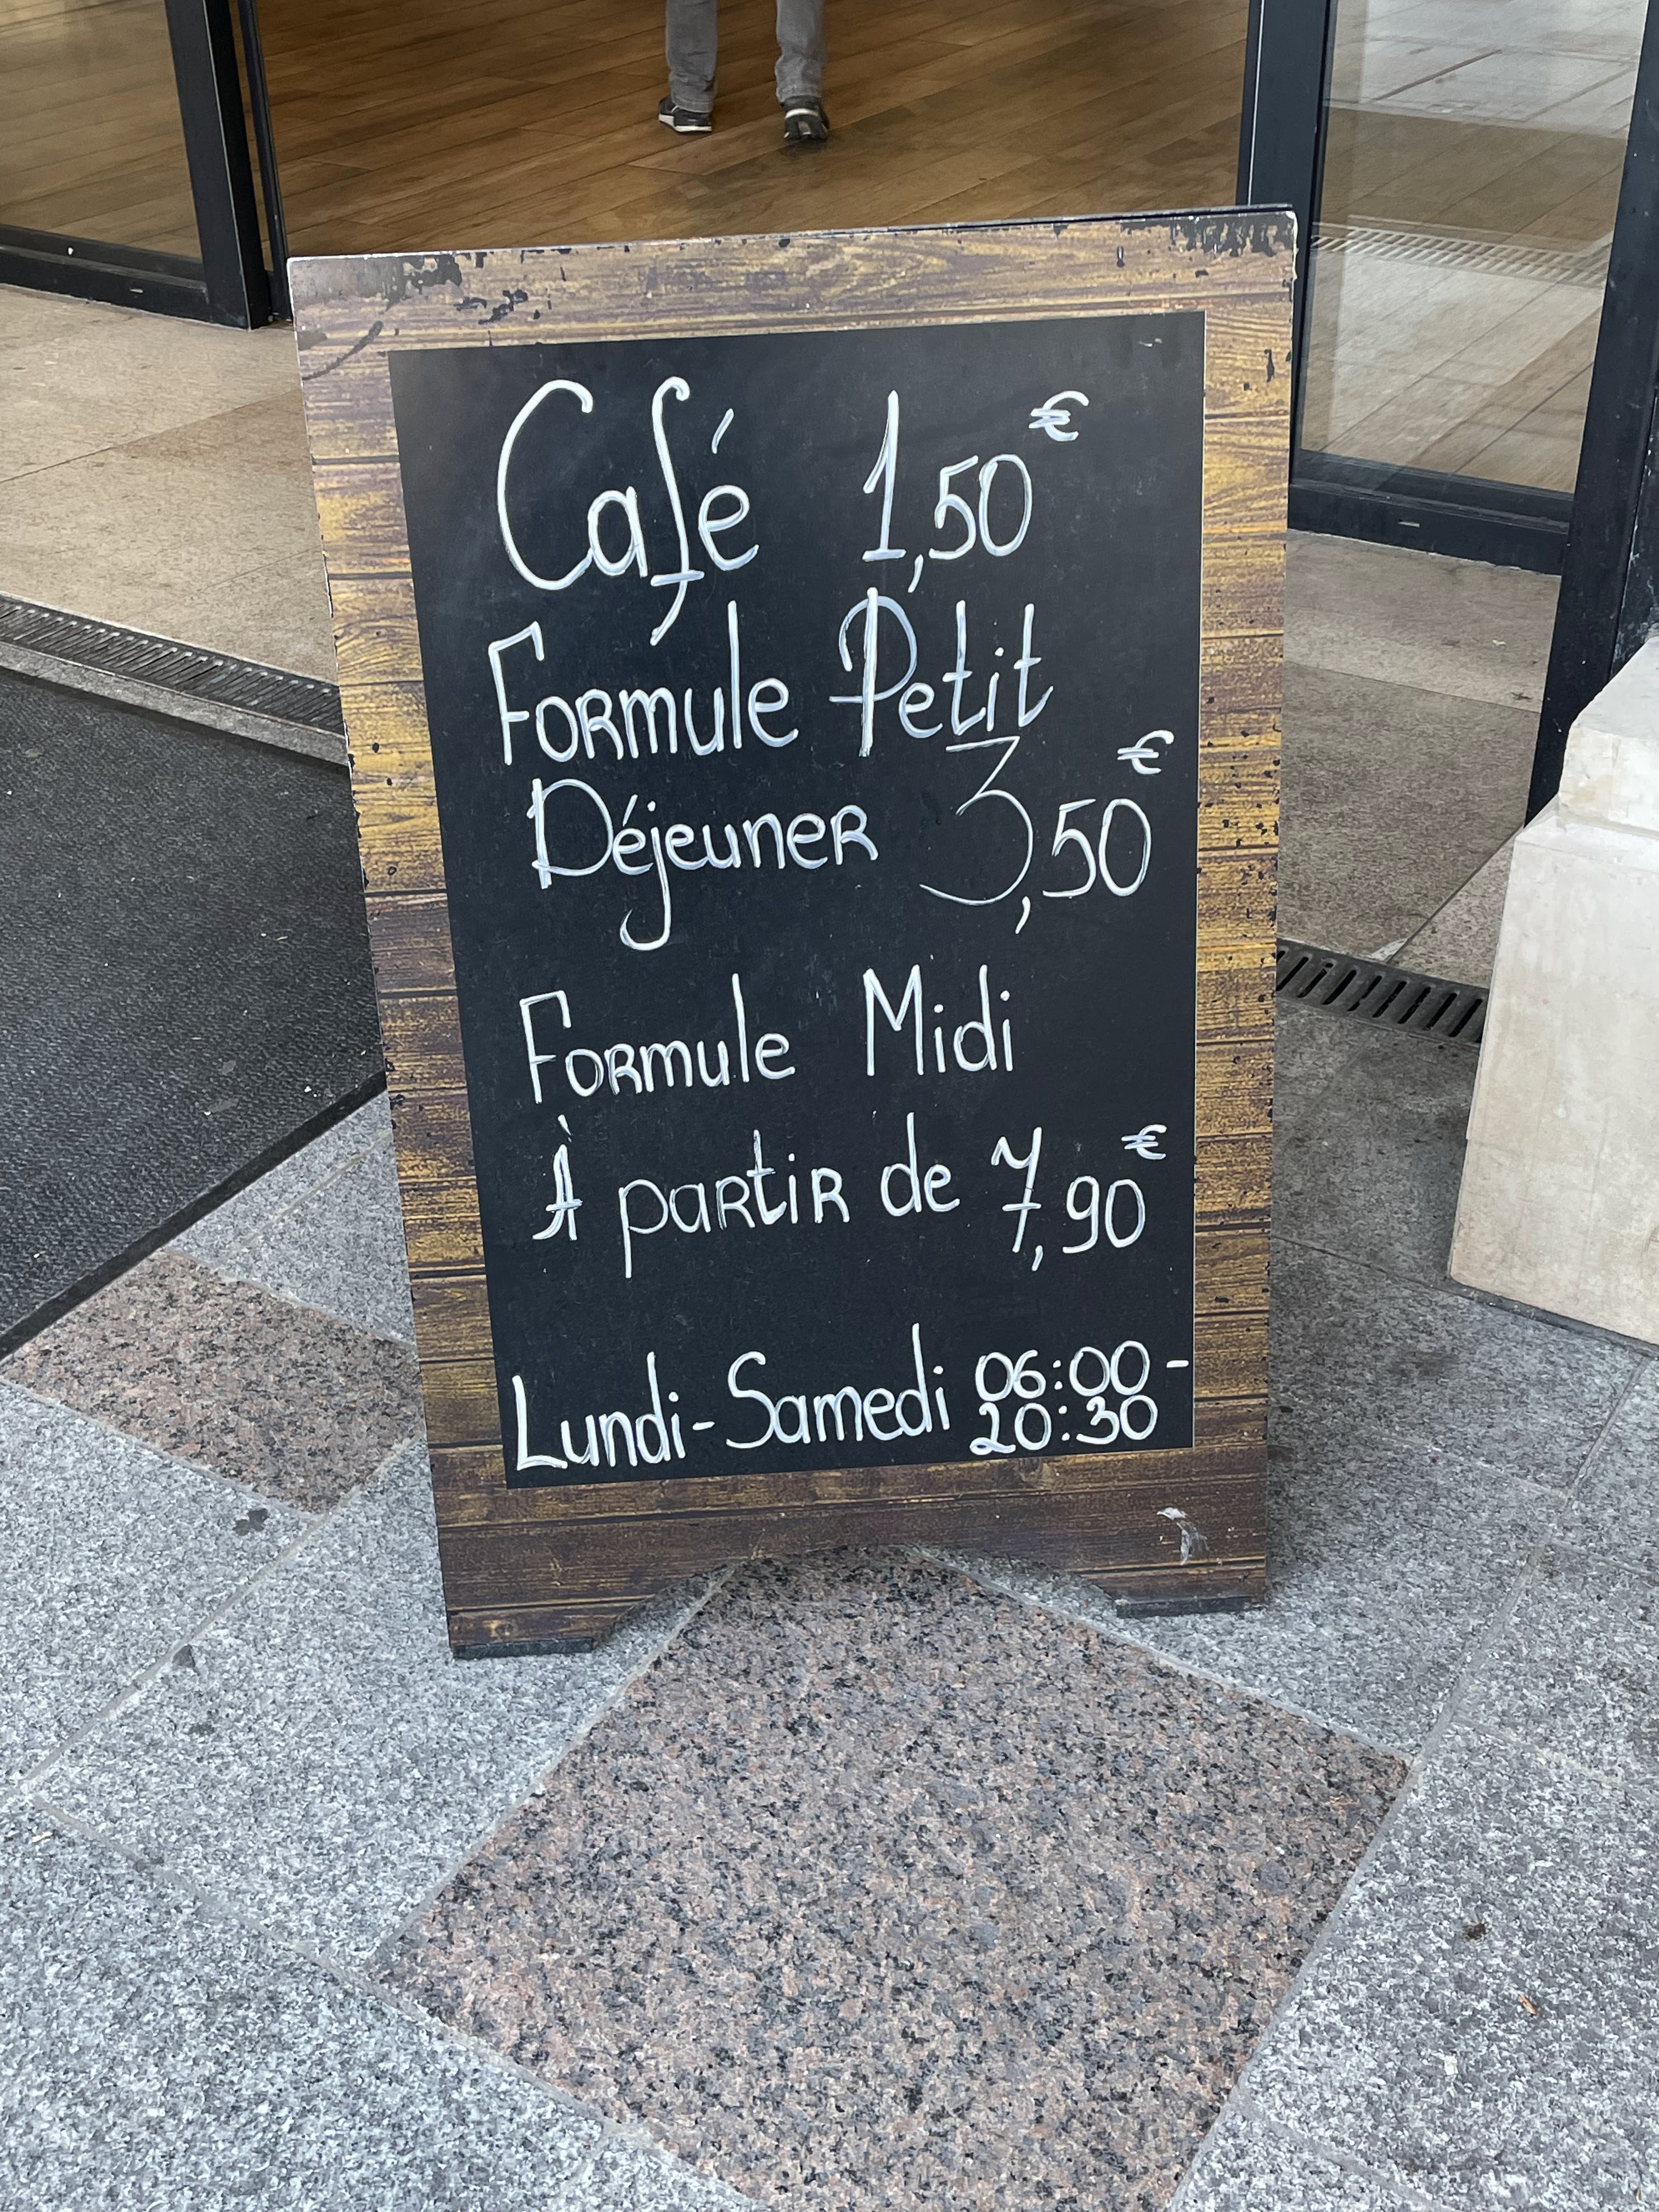 Café 1,50€
Formule Petit
Déjeuner 3,50€
Formule Midi
À partir de 7,90€
Lundi-Samedi 06:00-
20:30